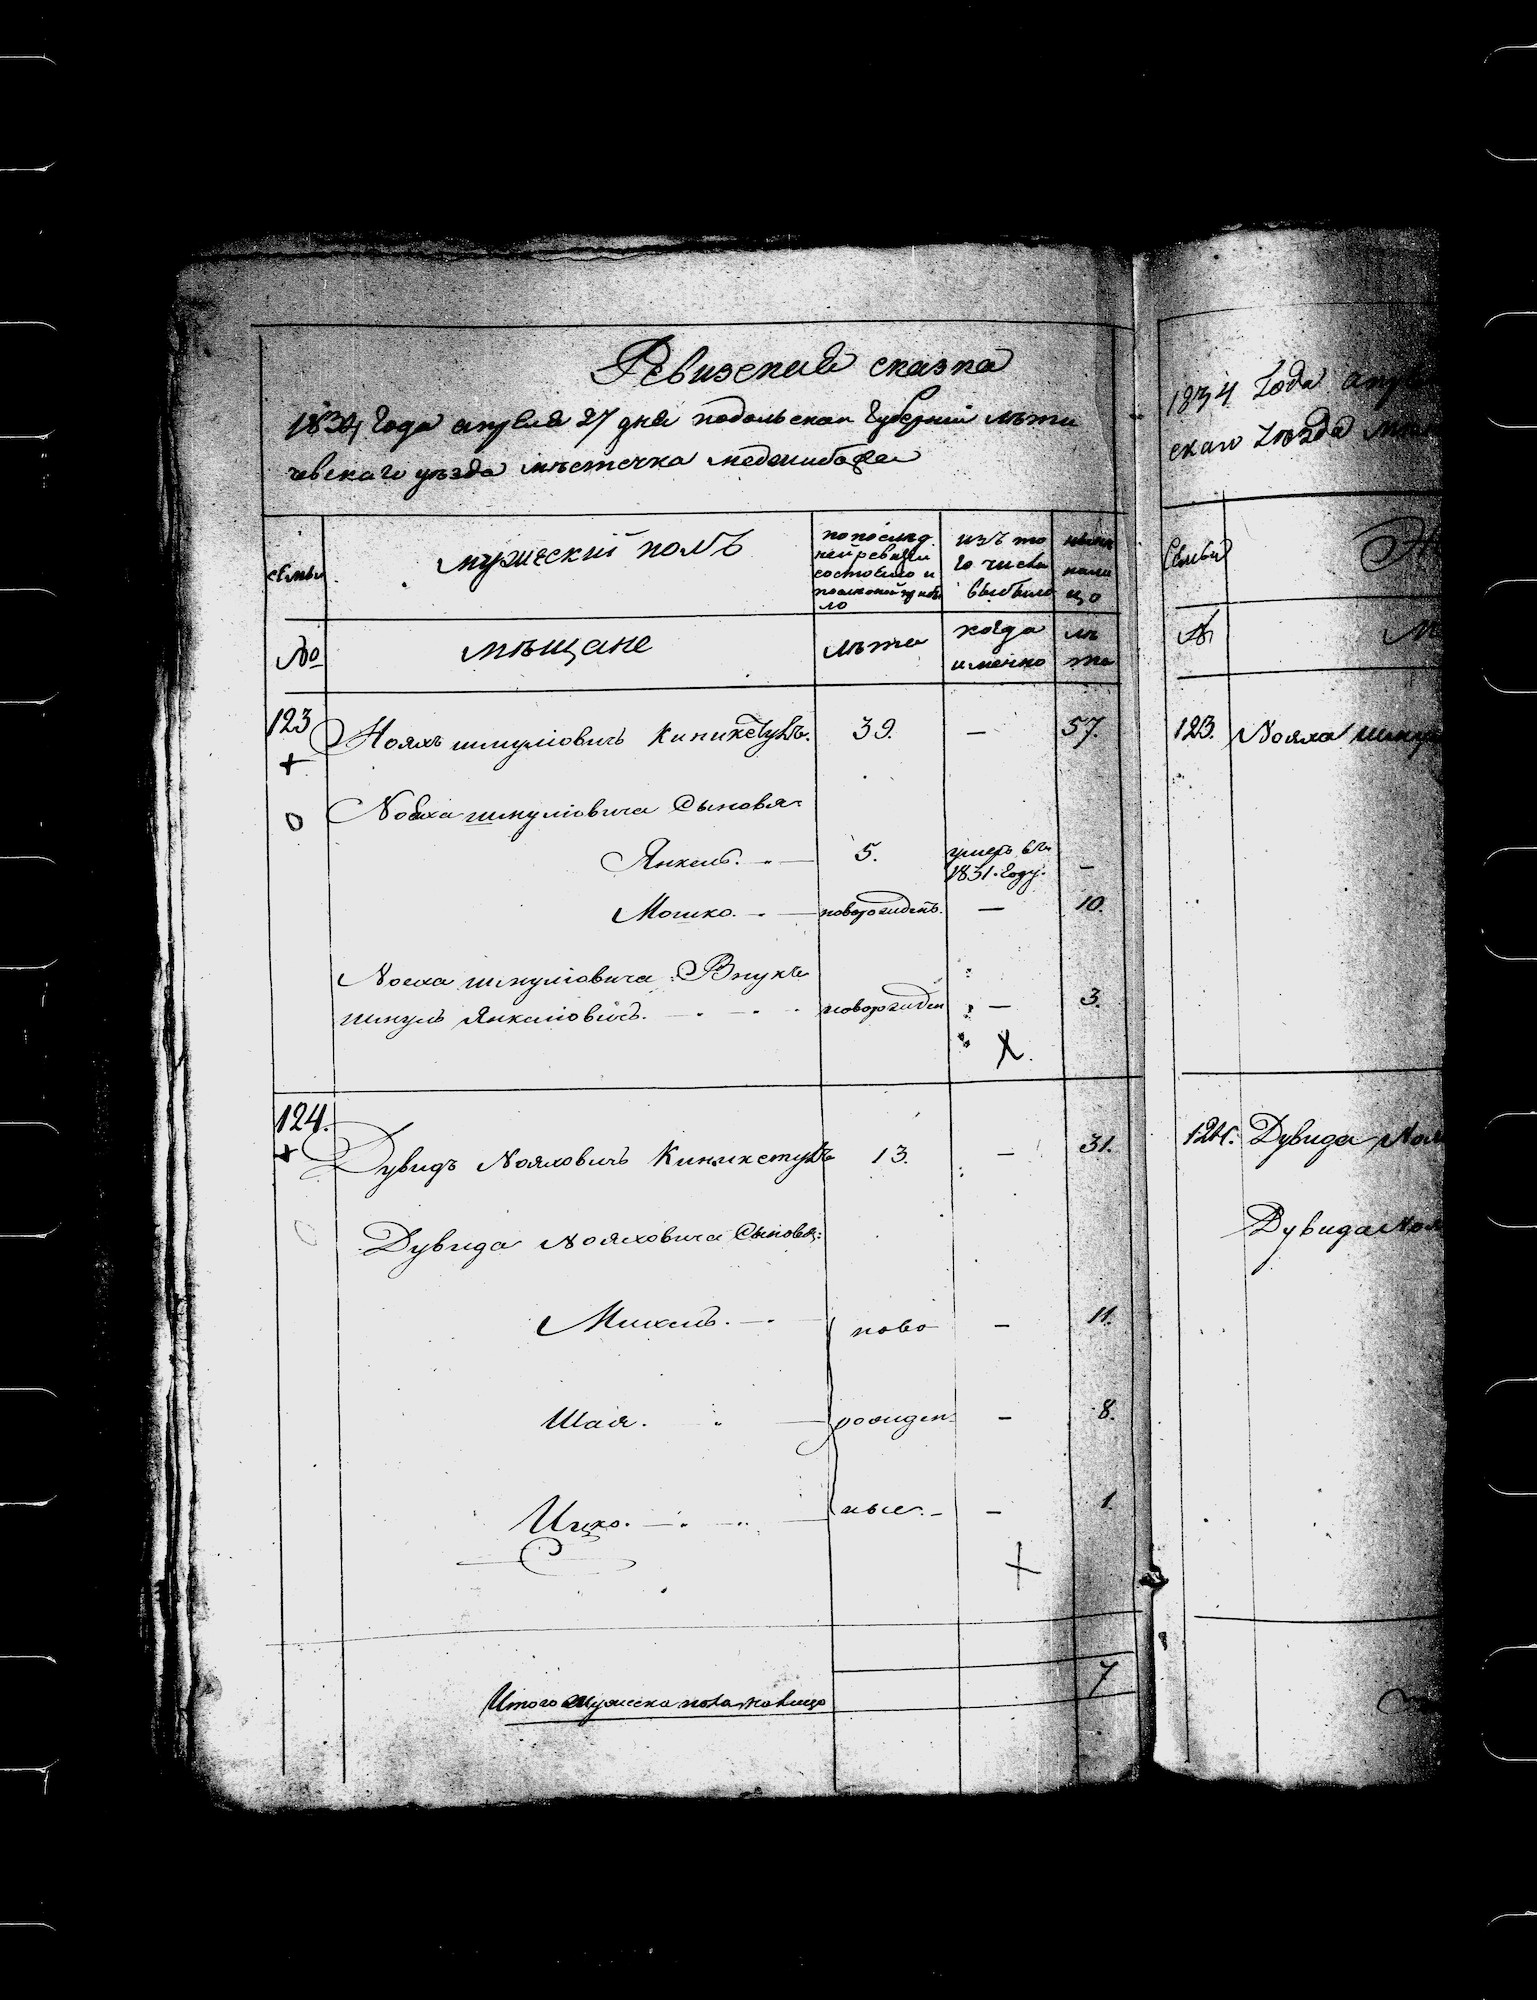 Ревизская сказка
1834 года апреля 27 дня подольской губерний лѣти
чевскаго уѣзда мѣстечка медживбожа
семьи
мужескій полъ
по послѣд
ней ревизіи
состояло и
после оной прибы
ло
изъ то
го числа
выбыло
нынѣ
нали
цо
№
мѣщане
лѣта
когда
именно
лѣ
та
123
Нояхъ шмуліовичъ Кипикетувъ.
39.
—
57.
Нояха шмуліовича Сыновя
Янкель.
5.
умеръ въ
1831. Году.
—
Мошко.
новорожденъ.
—
10.
Нояха шмуліовича Внукъ
шмуль Янкеліовичъ.
новорожден
—
3.
X
124.
Дувидъ Нояховичъ Киникетувъ
13.
—
31.
Дувида Нояховича Сыновя:
Михель.
ново
—
11.
Шая.
рожден
—
8.
Ицко.
ные.
—
1.
Итого мужеска пола налицо
7
1834 Года апр
скаго уѣзда
Семьи
№
123.
Нояха шму
124.
Дувида Ноя
Дувида Ноя